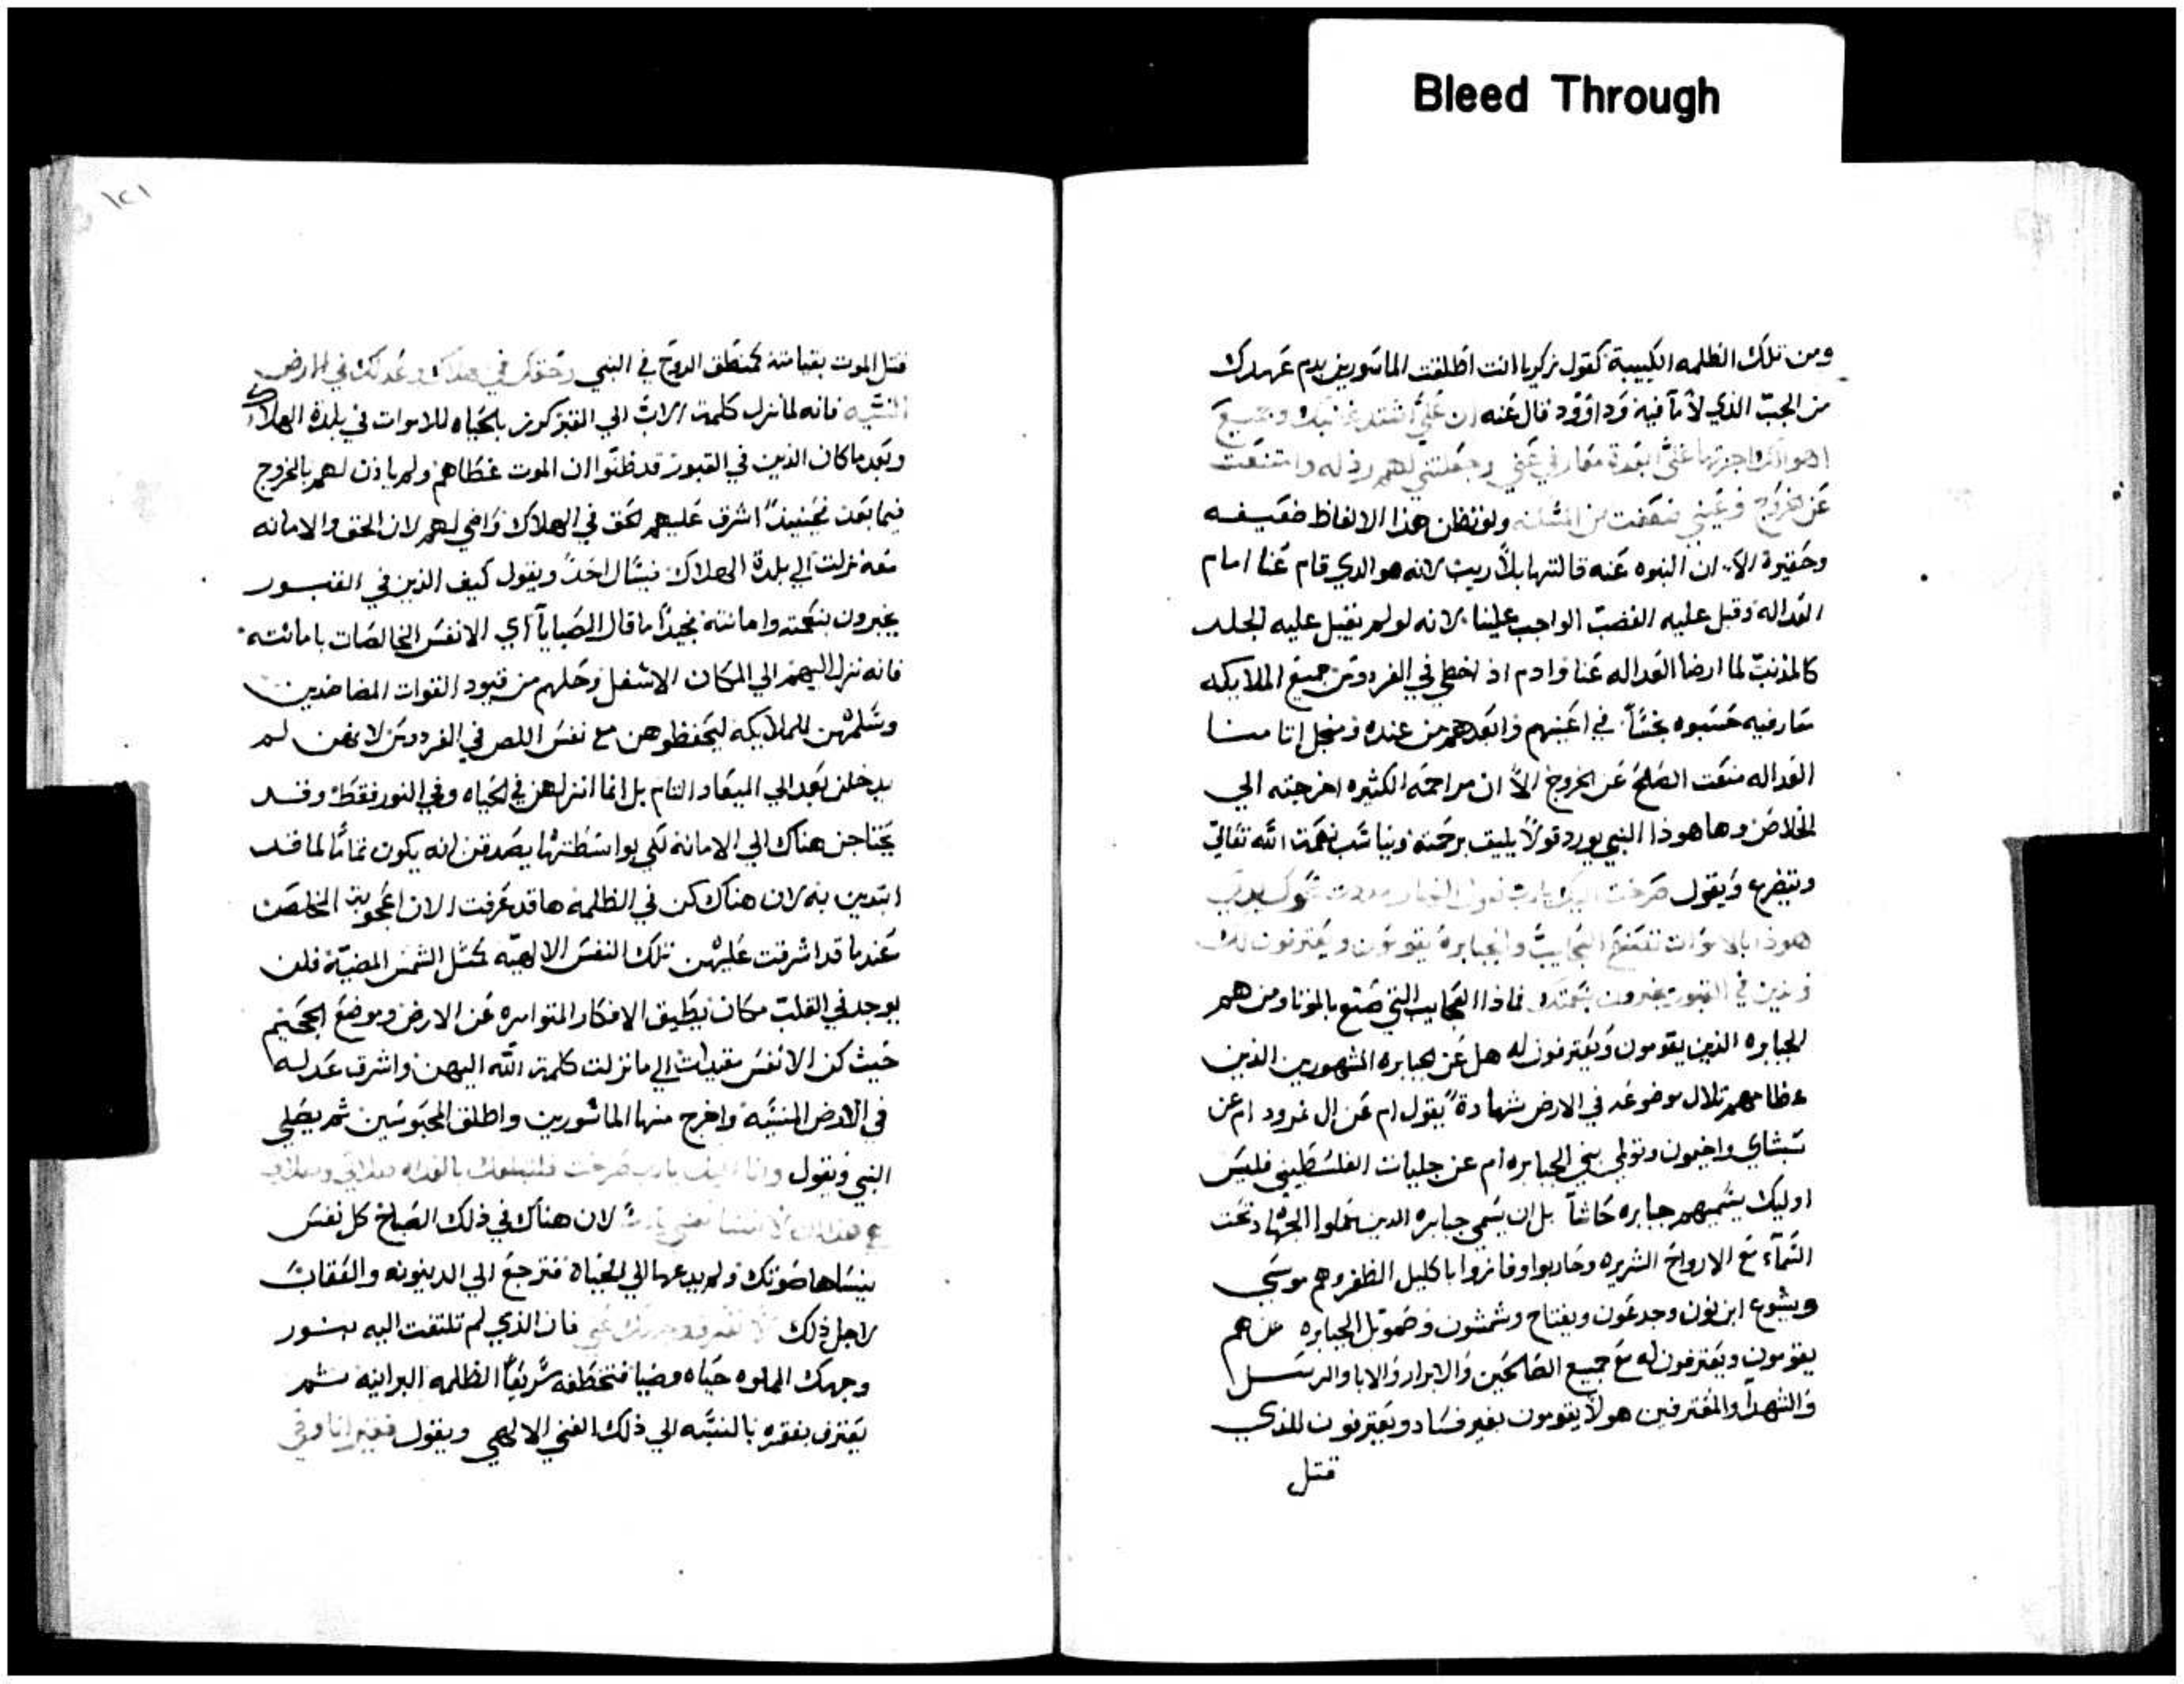 Bleed Through
ومن تلك الظلمه الكييبة كقول زكريا انت اطلقت الماسورين بدم عهدك
من الجبّ الذي لا مآ فيه وداوود قال عنه ان عليّ اشتد غضبك وجميع
اهوالك اجزتها عليّ ابعدة معارفي عني وجعلتني لهم رذله وامتنعت
عن الخروج وعيني ضعفت من المسكنه ولو نظن هذا الالفاظ ضعيفه
وحقيرة الا ان النبوه عنه قالتها بلا ريب لانه هو الدي قام عنا امام
العداله وقبل عليه الغضب الواجب علينا لانه لو لم يقبل عليه الجلد
كالمذنب لما ارضا العداله عنا وادم اذ اخطي في الفردوس جميع الملايكه
معارفيه حسبوه نجسًا في اعينهم وابعدهم من عنده ومنجل اتامنا
العداله منعت الصلح عن الخروج الا ان مراحمه الكثيره اخرجته الي
الخلاص وها هوذا النبي يورد قولًا يليق برحمته ويناسب نعمة الله تعالي
ويتضرع ويقول صرخت اليك يارب نهار مددت نحوك يدي
هوذا بالاموات تصنع العجايب والجبابرة يقومون ويعترفون لك
والذين في القبور يخبرون بنعمتك فماذا العجايب التي صنع بالموتا ومن هم
الجبابره الذين يقومون ويعترفون له هل عن الجبابره المشهورين الذين
عظامهم تلال موضوعه في الارض شهادة يقول ام عن ال نمرود ام عن
شيشاي واخيمون وتولمي بني الجبابره ام عن جليات الفلسطيني فليس
اوليك يسميهم جبابره حاشا بل ان يسمي جبابره الدين عملوا الجهاد تحت
السمآء مع الارواح الشريره وحاربوا وفازوا باكليل الظفر وهم موسي
ويشوع ابن نون وجدعون ويفتاح وشمشون وصموئل الجبابره هم
يقومون ويعترفون له مع جميع الصالحين والابرار والابا والرسل
والشهدآ والمعترفين هولا يقومون بغير فساد ويعترفون للذي
قتل
١٢١
قتل الموت بقيامته كمنطق الروح في النبي وحقك في هلاك وعدلك في الارض
المنسّيه فانه لما نزل كلمة الاب الي القبر كورز بالحياه للاموات في بلدة الهلاك
وبعد ما كان الذين في القبور قد ظنوا ان الموت غطاهم ولم ياذن لهم بالخروج
فيما بعد فحينيذ اشرق عليهم الحق في الهلاك واضي لهم لان الحق والامانه
معه نزلت الي بلدة الهلاك فيسال احد ويقول كيف الذين في القبور
يخبرون بنعمته وامانته فجيدًا ما قال الصبايا اي الانفس الخالصات بامانته
فانه نزل اليهم الي المكان الاسفل وحلهم من قيود القوات المضاضدين
وسلمهن للملايكه ليحفظوهن مع نفس اللص في الفردوس لانهن لم
يدخلن بعد الي الميعاد التام بل انما انزلهن في الحياه وفي النور فقط وقد
يحتاجن هناك الي الامانه لكي بواسطتها يصدقن انه يكون تمامًا لما قد
ابتدين به لان هناك كن في الظلمة ها قد عرفت الان اعجوبة الخلصت
عندما قد اشرقت عليهن تلك النفس الالهيه كمثل الشمس المضيّة فلن
يوجد في القلب مكان يطيق الافكار المتوامره عن الارض وموضع الجحيم
حيث كن الانفس مقيدات الي ما نزلت كلمة الله اليهن واشرق عدله
في الارض المنسّيه واخرج منها الماسورين واطلق المحبوسين ثم يصلي
النبي ويقول وانا اليك يارب صرخت فلتبلغك بالغداه صلاتي
لا تنسا نفسي يارب لان هناك في ذلك الصباح كل نفس
ينساها صوتك ولم يدعها الي الحياة فترجع الي الدينونه والعقاب
لاجل ذلك لا تصرف وجهك عني فان الذي لم تلتفت اليه بنور
وجهك المملوه حياه وضيا فتخطفه سريعًا الظلمه البرانيه ثم
يعترف بفقره بالنسبه الي ذلك الغني الالهي ويقول فقير انا وفي